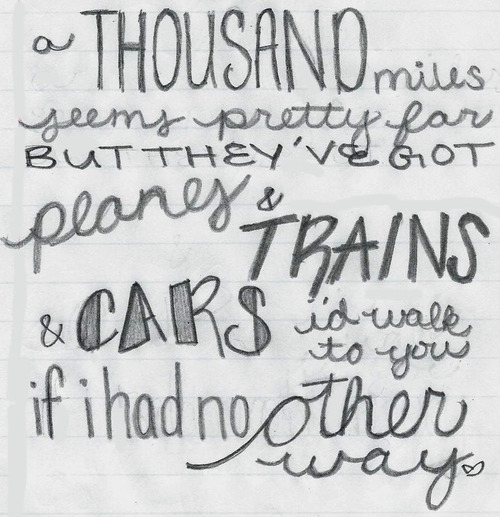 a THOUSAND miles
seems pretty far
BUT THEY'VE GOT
planes &
TRAINS
& CARS i'd walk
to you
if i had no other
way